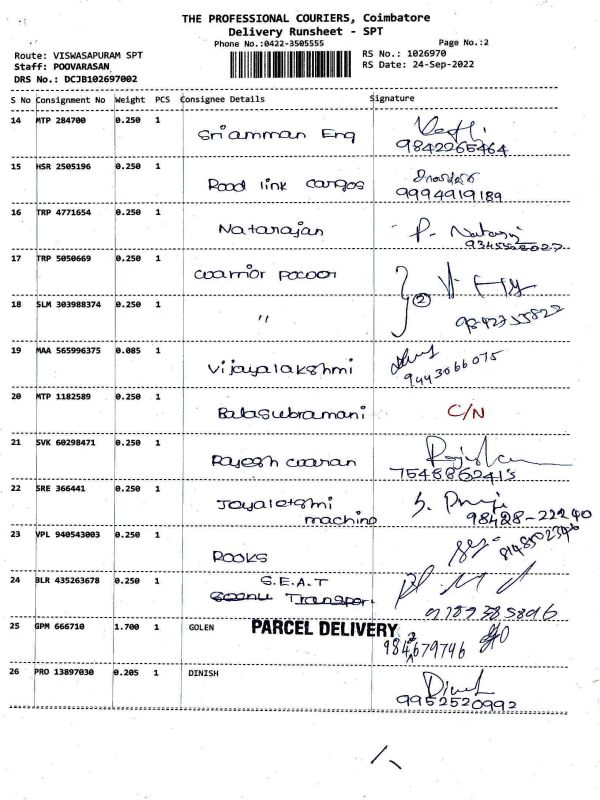 THE PROFESSIONAL COURIERS, Coimbatore
Delivery Runsheet - SPT
Phone No.:0422-3505555 Page No.:2
Route: VISWASAPURAM SPT RS No.: 1026970
Staff: POOVARASAN RS Date: 24-Sep-2022
DRS No.: DCJB102697002
S No Consignment No Weight PCS Consignee Details Signature
14 MTP 284700 0.250 1 Sri amman Eng
9842265464
15 HSR 2505196 0.250 1 Road link cargos
9994919189
16 TRP 4771654 0.250 1 Natarajan P.
17 TRP 5050669 0.250 1
2
18 SLM 303988374 0.250 1 "
19 MAA 565996375 0.085 1 Vijayalakshmi
9443066075
20 MTP 1182589 0.250 1 Balasubramani C/N
21 SVK 60298471 0.250 1 Rajesh
22 SRE 366441 0.250 1
machino 98428-22240
23 VPL 940543003 0.250 1 ROOKS
8148502346
24 BLR 435263678 0.250 1 S.E.A.T
Transpor.
25 GPM 666710 1.700 1 GOLEN PARCEL DELIVERY
9842679796
26 PRO 13897030 0.205 1 DINISH
9952520992